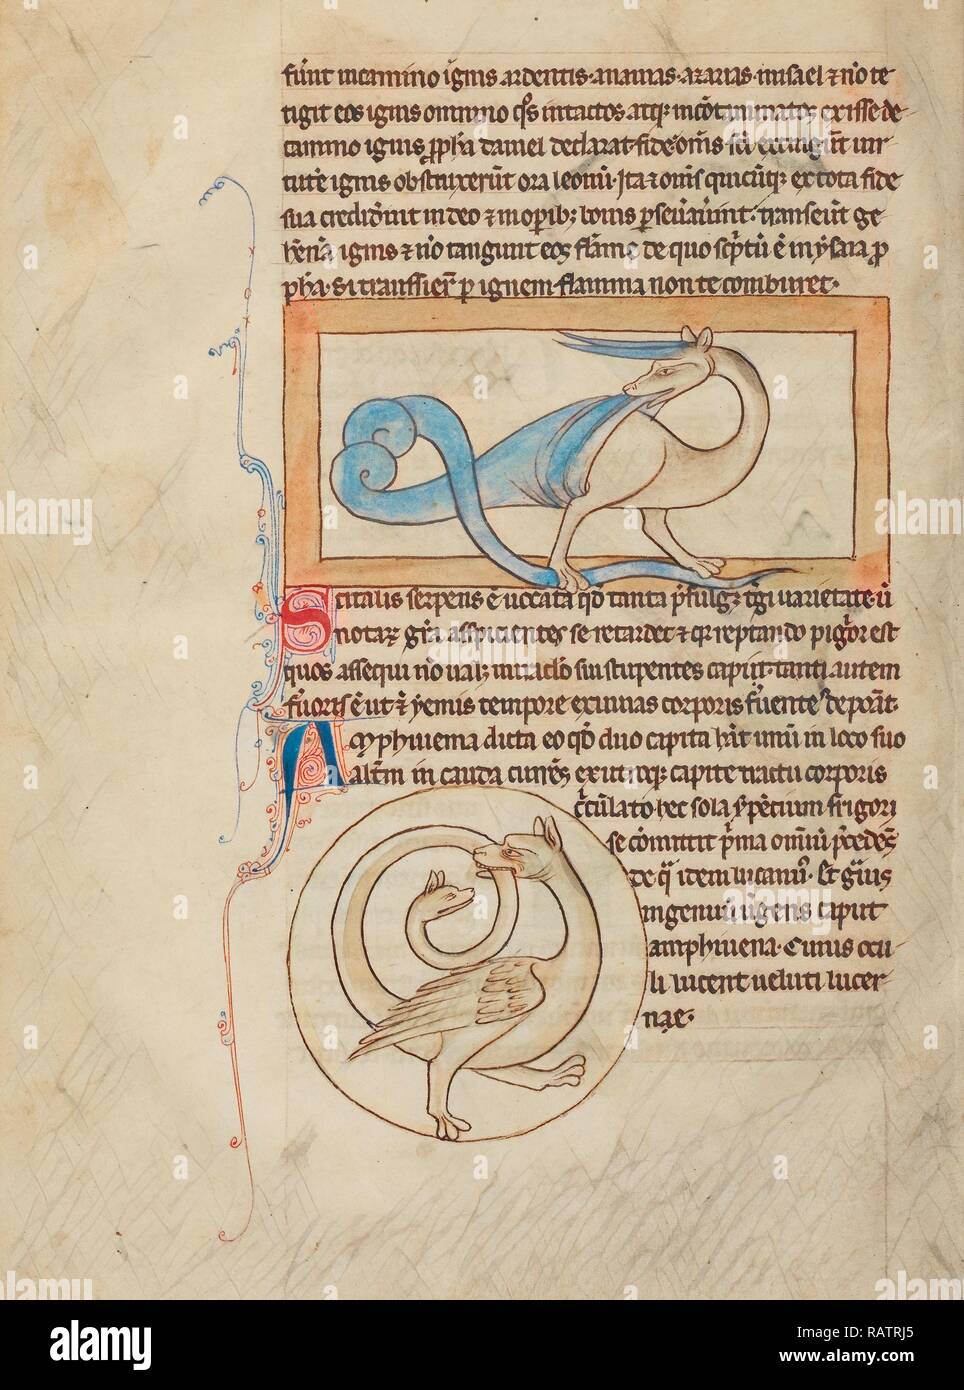 fu̅nt in camino ignis ardentis · ananias · azarias · misael ⁊ no̅ te
tigit eos ignis omnino q̅s intactos atq; inco̅taminatos exisse de
camino ignis daniel declarat · fide om̅s s̅c̅i extinxeru̅t uir
tute̅ ignis obstruxeru̅t ora leonu̅ · Ita ⁊ om̅s quicu̅q; ex tota fide
sua crediderint in deo ⁊ in operib; bonis p̅seuauunt · transeu̅t ge
henna̅ ignis ⁊ no̅ tangunt eos fla̅me de quo sc̅ptu̅ e̅ in ysaia p̅
pha · Si transsier̅ p̅ ignem flamma non te comburet ·
Scitalis serpens e̅ uocata q̅d tanta p̅fulg; t̅gi uarietate · u̅
notar̅ gr̅a asspicientes se retardet ⁊ q̅ reptando pigrior est
quos assequi no̅ ual; miraclo̅ sui stupentes capit · tanti autem
feruoris e̅ ut ⁊ hyemis tempore exuuias corporis feruentes deponat ·
Amphiuena dicta eo q̅d duo capita h̅at unu̅ in loco suo
alt̅m in cauda curre̅s ex utroq; capite tractu corporis
circulato hec sola serpentium frigori
se co̅mittit p̅ma omniu̅ p̅cede̅s
de q̅ idem lucanus · Et grauis
in geminu̅ uergens caput
amphiuena · Cuius ocu
li lucent ueluti lucer
nae ·
alamy
a
Image ID: RATRJ5
www.alamy.com